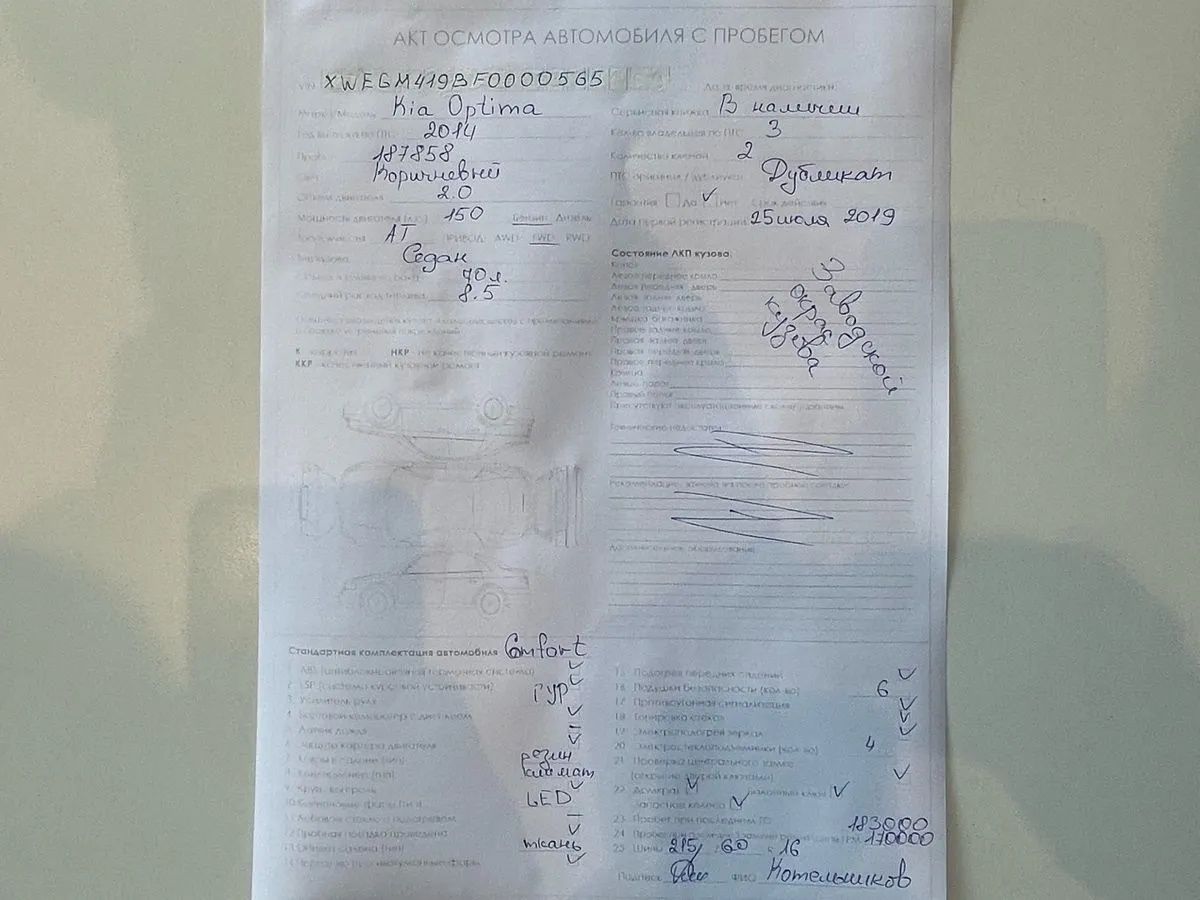 АКТ ОСМОТРА АВТОМОБИЛЯ С ПРОБЕГОМ
VIN XWEGM419BF0000565
Марка/Модель Kia Optima
Год выпуска по ПТС 2014
Пробег 187858
Цвет Коричневый
Объем двигателя 2.0
Мощность двигателя (л.с.) 150 Бензин Дизель
АТ ПРИВОД: AWD FWD RWD
Седан
70 л.
8.5
К НКР - не качественный кузовной ремонт
ККР - качественный кузовной ремонт
Дата/время диагностики:
Сервисная книжка В наличии
Кол-во владельцев по ПТС 3
Количество ключей 2
ПТС оригинал / дубликат Дубликат
Гарантия Да Нет Срок действия
Дата первой регистрации 25 июля 2019
Состояние ЛКП кузова:
Капот
Левое переднее крыло
Левая передняя дверь
Левая задняя дверь
Левое заднее крыло
Крышка багажника
Правое заднее крыло
Правая задняя дверь
Правая передняя дверь
Правое переднее крыло
Крыша
Левый порог
Правый порог
Заводской
окрас
кузова
Технические недостатки
Дополнительное оборудование
Стандартная комплектация автомобиля Comfort
1. ABS (антиблокировочная тормозная система)
2. ESP (система курсовой устойчивости)
3. Усилитель руля ГУР
4. Бортовой компьютер с дисплеем
5. Датчик дождя
6. Защита картера двигателя
7. Ковры в салоне (тип) резин
8. Кондиционер (тип) климат
9. Круиз контроль
LED
11. Лобовое стекло с подогревом
12. Пробная поездка проведена
13. Обивка салона (тип) ткань
15. Подогрев передних сидений
16. Подушки безопасности (кол-во) 6
17. Противоугонная сигнализация
18. Тонировка стекол
19. Электроподогрев зеркал
20. Электростеклоподъемники (кол-во) 4
21. Проверка центрального замка
(открытие двурой ключами)
22. Домкрат Баллонный ключ
Запасное колесо
23. Пробег при последнем ТО 183000
24. 170000
25. Шины 215/ 60 R 16
Подпись ФИО Котельников